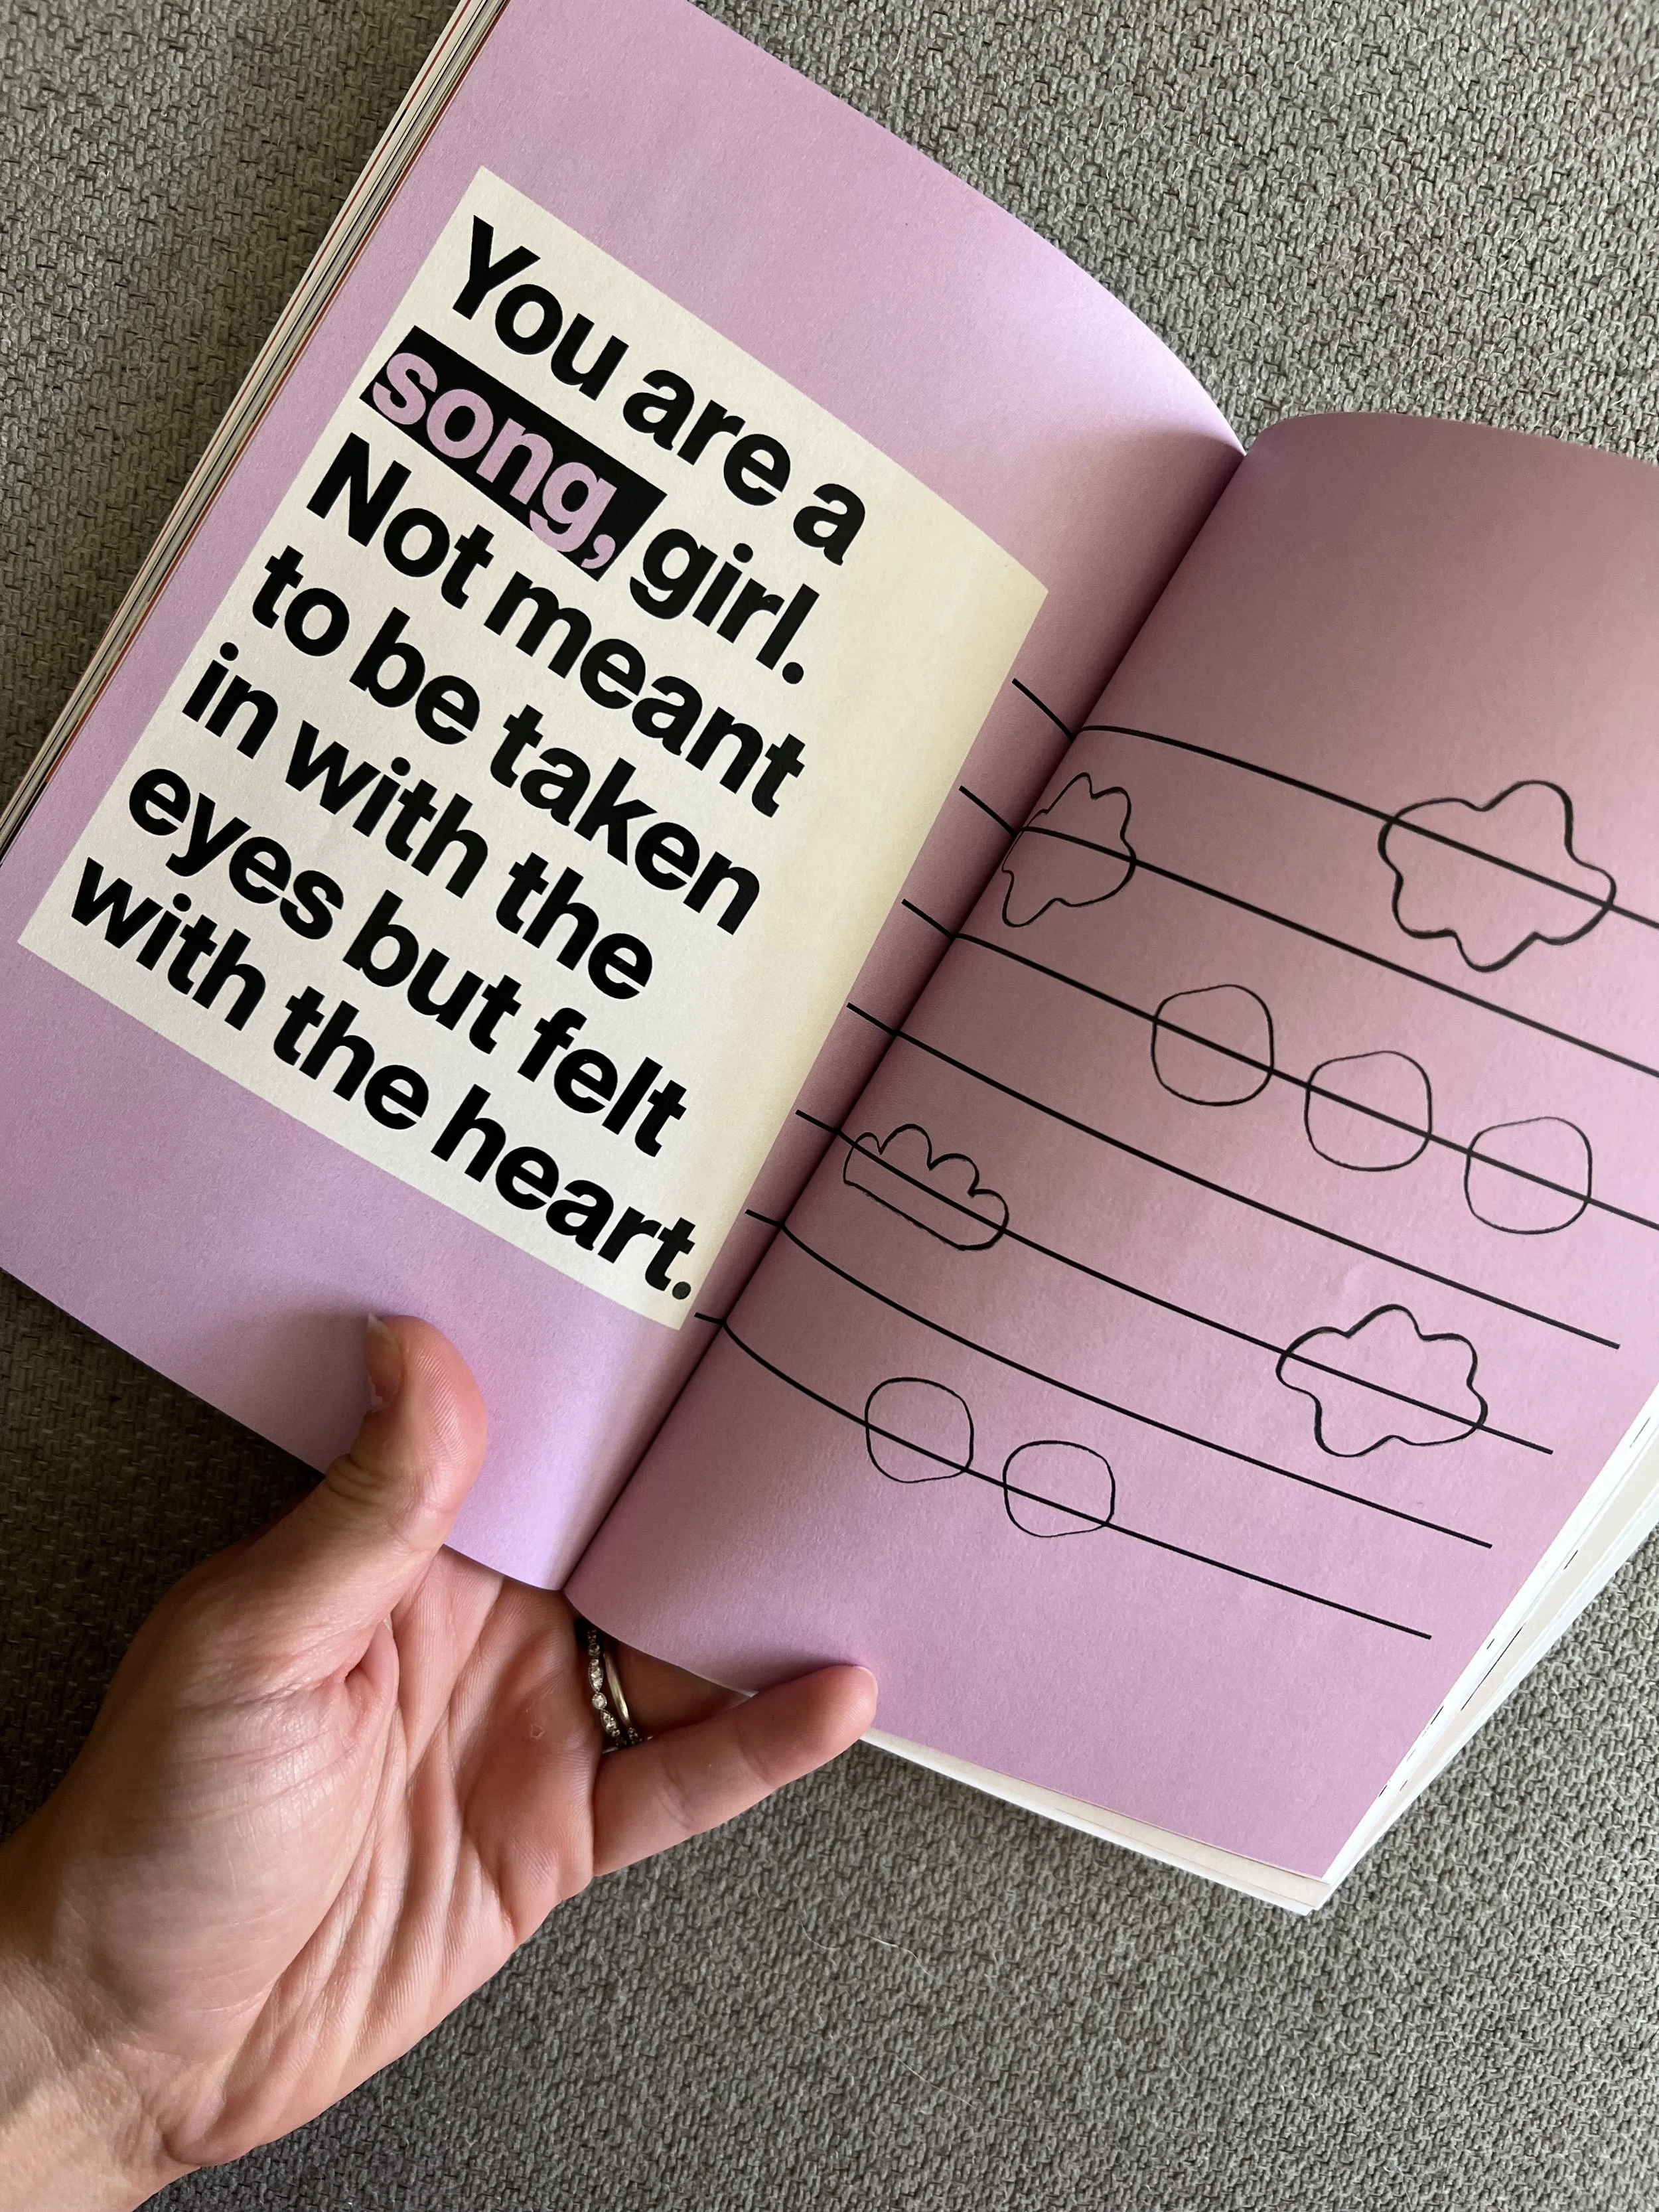 You are a
song, girl.
Not meant
to be taken
in with the
eyes but felt
with the heart.